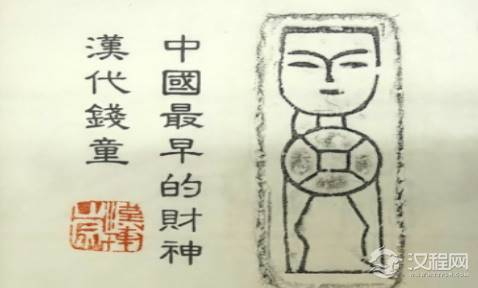 中國最早的財神
漢代錢童
汉程网